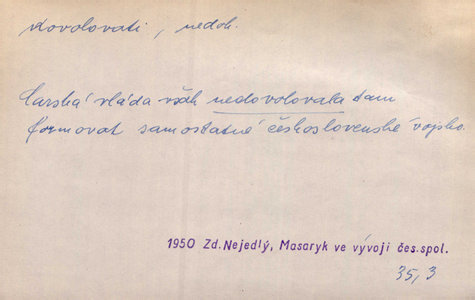 dovolovati, nedok.
Carská vláda však nedovolovala tam
formovat samostatné československé vojsko.
1950 Zd. Nejedlý, Masaryk ve vývoji čes. spol.
35,3